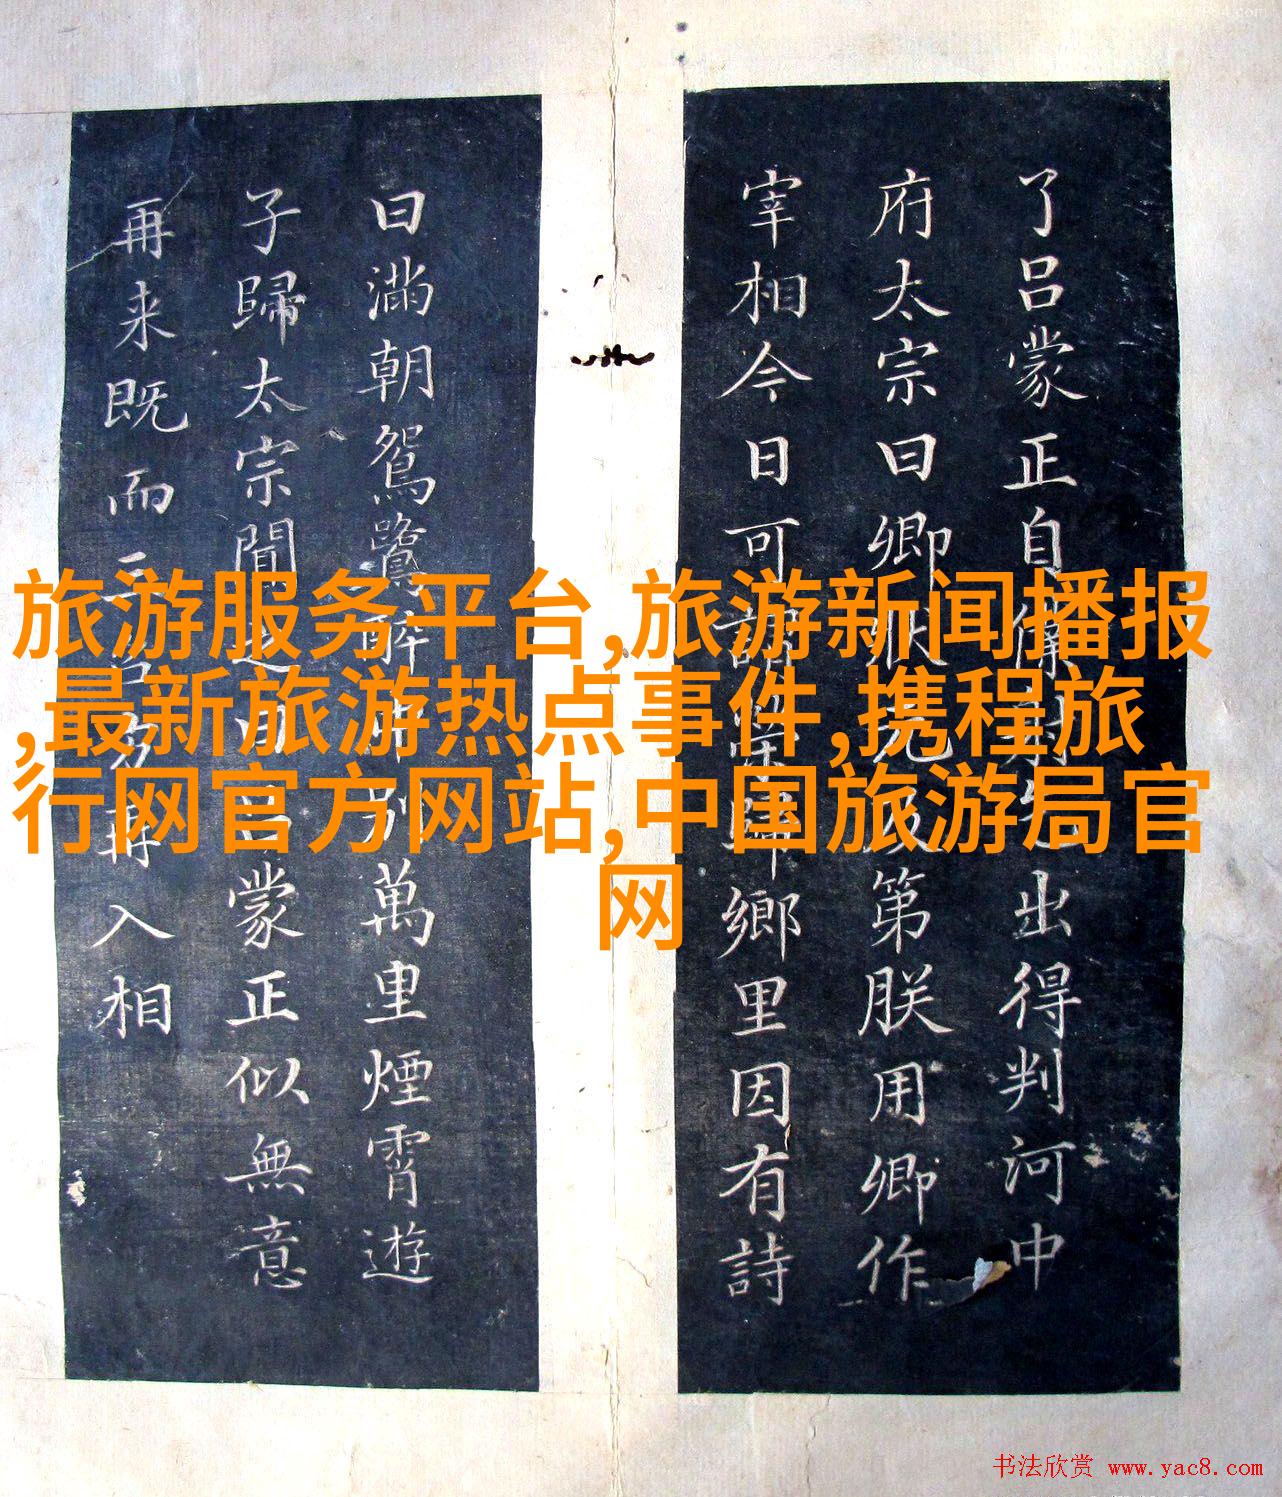 了吕蒙正自僕射出得判河中
府太宗曰卿狀元及第朕用卿作
宰相今日可謂榮歸鄉里因有詩
曰滿朝鴛鷺醉別萬里煙霄遊
子歸太宗聞之曰吕蒙正似無意
再来既而三召再入相
旅游服务平台,旅游新闻播报
,最新旅游热点事件,携程旅
行网官方网站,中国旅游局官
网
书法欣赏 www.yac8.com